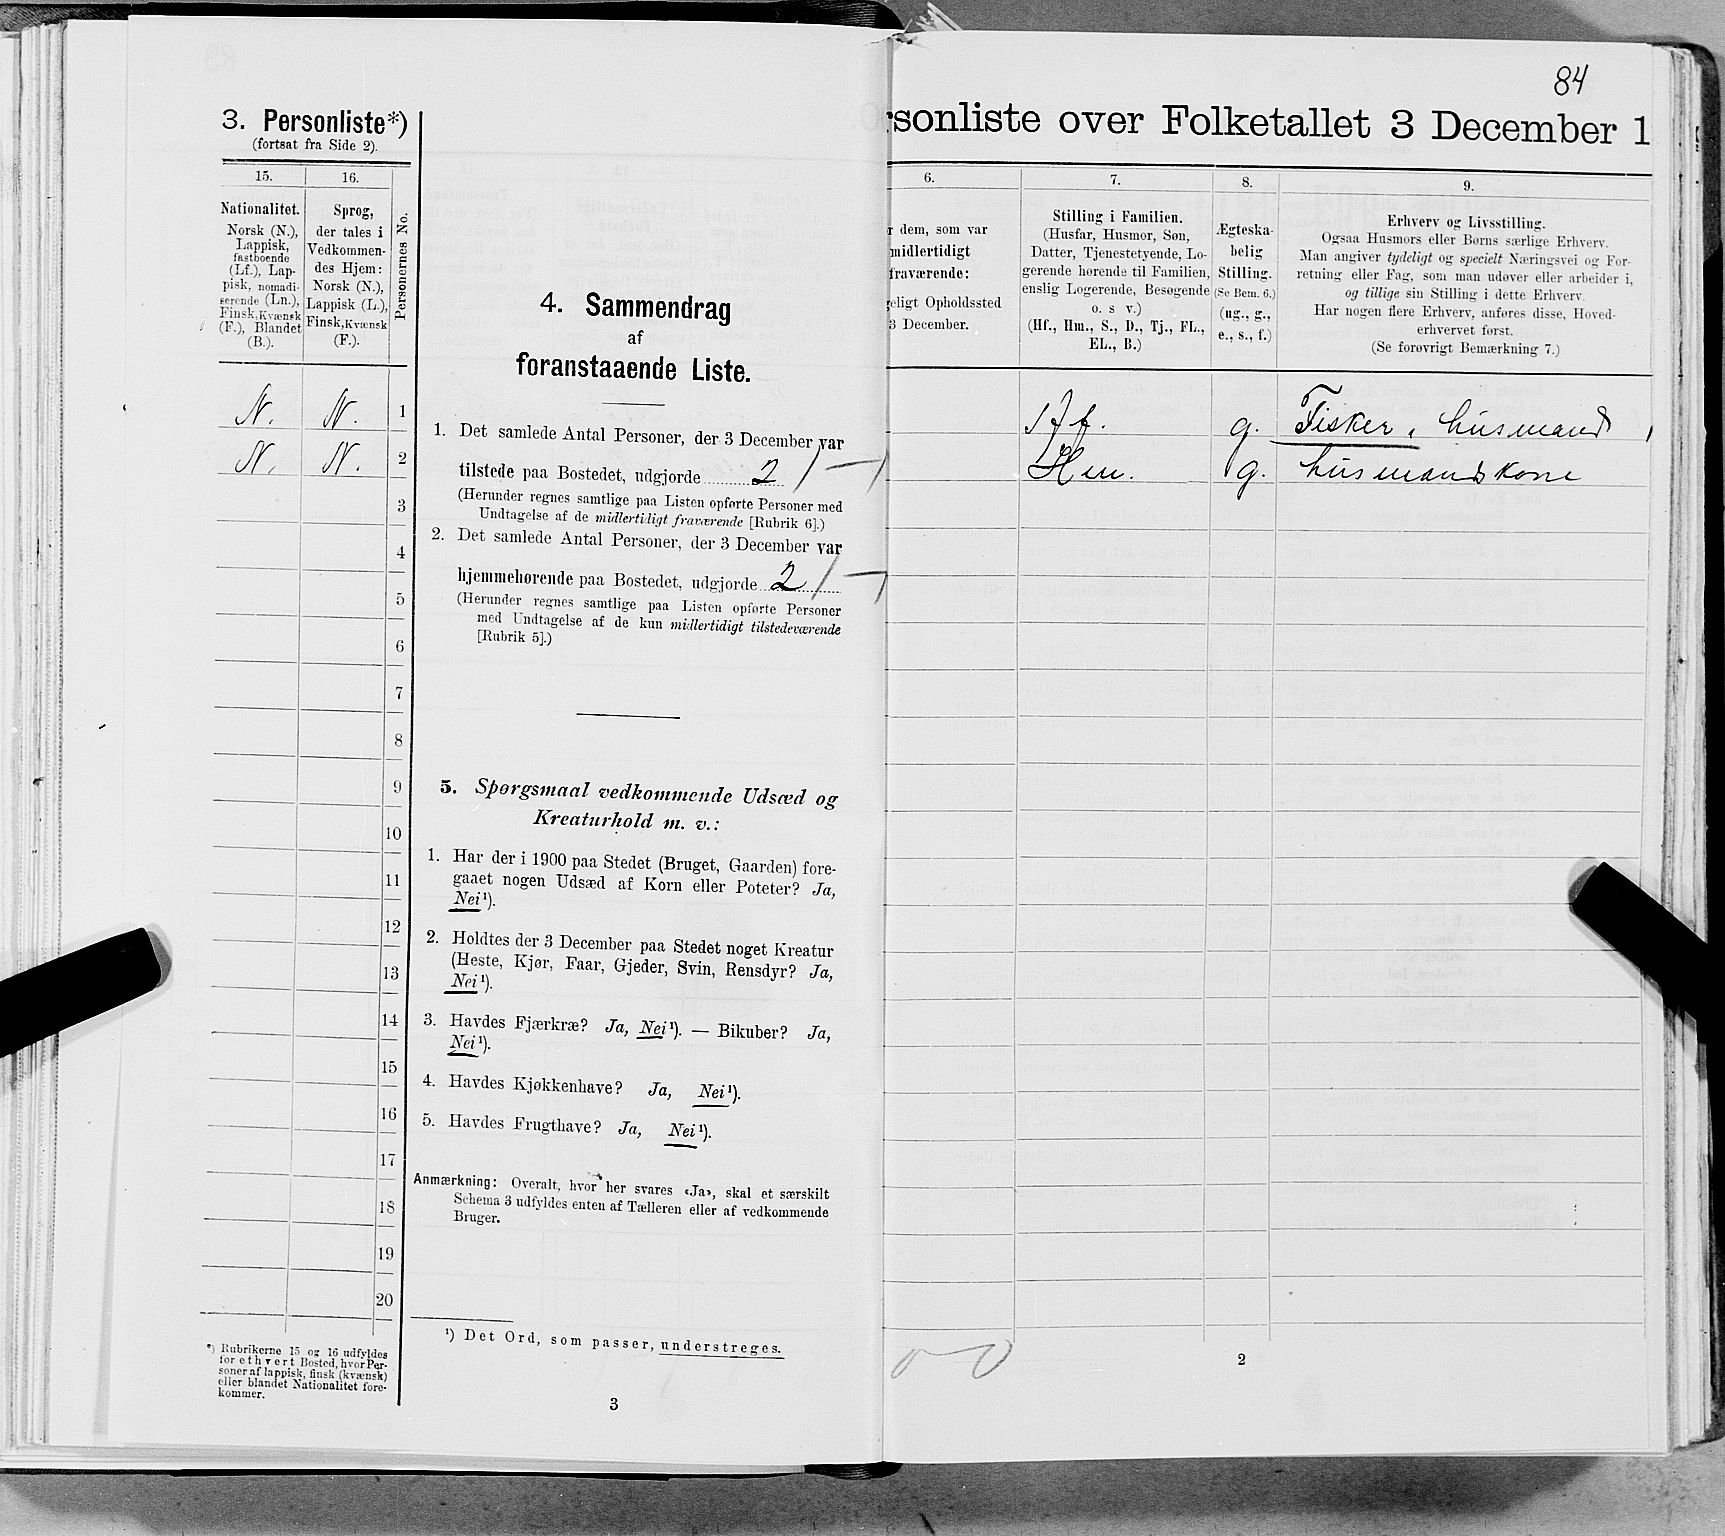 3. Personliste*)
(fortsat fra Side 2).
15.
16.
Personernes No.
Nationalitet.
Norsk (N.),
Lappisk,
fastboende
(Lf.), Lap-
pisk, nomadi-
serende (Ln.),
Finsk, Kvænsk
(F.), Blandet
(B.).
Sprog,
der tales i
Vedkommen-
des Hjem:
Norsk (N.),
Lappisk (L.),
Finsk, Kvænsk
(F.).
N. N. 1
N. N. 2
3
4
5
6
7
8
9
10
11
12
13
14
15
16
17
18
19
20
*) Rubrikerne 15 og 16 udfyldes
for ethvert Bosted, hvor Per-
soner af lappisk, finsk (kvænsk)
eller blandet Nationalitet fore-
kommer.
4. Sammendrag
af
foranstaaende Liste.
1. Det samlede Antal Personer, der 3 December var
tilstede paa Bostedet, udgjorde 2
(Herunder regnes samtlige paa Listen opførte Personer med
Undtagelse af de midlertidigt fraværende [Rubrik 6].)
2. Det samlede Antal Personer, der 3 December var
hjemmehørende paa Bostedet, udgjorde 2
(Herunder regnes samtlige paa Listen opførte Personer
med Undtagelse af de kun midlertidigt tilstedeværende
[Rubrik 5].)
5. Spørgsmaal vedkommende Udsæd og
Kreaturhold m. v.:
1. Har der i 1900 paa Stedet (Bruget, Gaarden) fore-
gaaet nogen Udsæd af Korn eller Poteter? Ja,
Nei¹).
2. Holdtes der 3 December paa Stedet noget Kreatur
(Heste, Kjør, Faar, Gjeder, Svin, Rensdyr? Ja,
Nei¹).
3. Havdes Fjærkræ? Ja, Nei¹). — Bikuber? Ja,
Nei¹).
4. Havdes Kjøkkenhave? Ja, Nei¹).
5. Havdes Frugthave? Ja, Nei¹).
Anmærkning: Overalt, hvor her svares «Ja», skal et særskilt
Schema 3 udfyldes enten af Tælleren eller af vedkommende
Bruger.
¹) Det Ord, som passer, understreges.
3
84
rsonliste over Folketallet 3 December 1
6.
7.
8.
9.
r dem, som var
midlertidigt
fraværende:
geligt Opholdssted
3 December.
Stilling i Familien.
(Husfar, Husmor, Søn,
Datter, Tjenestetyende, Lo-
gerende hørende til Familien,
enslig Logerende, Besøgende
o. s v.)
(Hf., Hm., S., D., Tj., FL.,
EL., B.)
Ægteska-
belig
Stilling.
(Se Bem. 6.)
(ug., g.,
e., s., f.)
Erhverv og Livsstilling.
Ogsaa Husmors eller Børns særlige Erhverv.
Man angiver tydeligt og specielt Næringsvei og For-
retning eller Fag, som man udøver eller arbeider i,
og tillige sin Stilling i dette Erhverv.
Har nogen flere Erhverv, anføres disse, Hoved-
erhvervet først.
(Se forøvrigt Bemærkning 7.)
Hf. g. Fisker, husmand
Hm. g. husmandskone
2